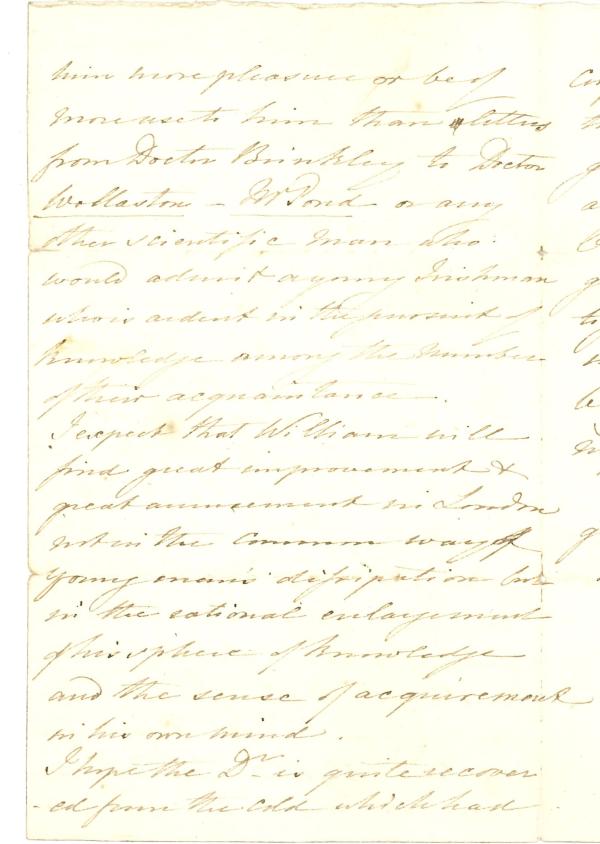 him more pleasure or be of
more use to him than letters
from Doctor Brinkley to Doctor
Wollaston - Mr Pond or any
other scientific man who
would admit a young Irishman
who is ardent in the pursuit of
knowledge among the number
of their acquaintance.
I expect that William will
find great improvement &
great amusement in London
not in the common way of
young men's dissipation but
in the rational enlargement
of his sphere of knowledge
and the sense of acquirement
in his own mind.
I hope the Dr is quite recover
-ed from the cold which had